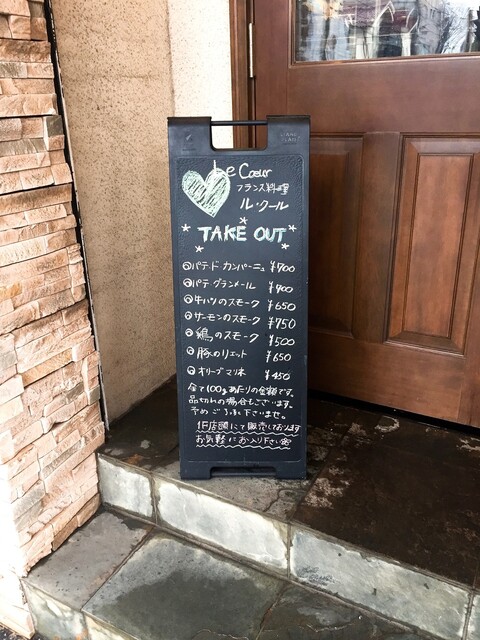 Le Cœur
フランス料理
ル・クール
TAKE OUT
パテ・ド カンパーニュ ¥700
パテ・グランメール ¥900
牛ハツのスモーク ¥650
サーモンのスモーク ¥750
鶏のスモーク ¥500
豚のリエット ¥650
オリーブマリネ ¥450
全て100gあたりの金額です。
品切れの場合もございます。
予めご了承下さいませ。
1F店頭にて販売しております
お気軽にお入り下さい